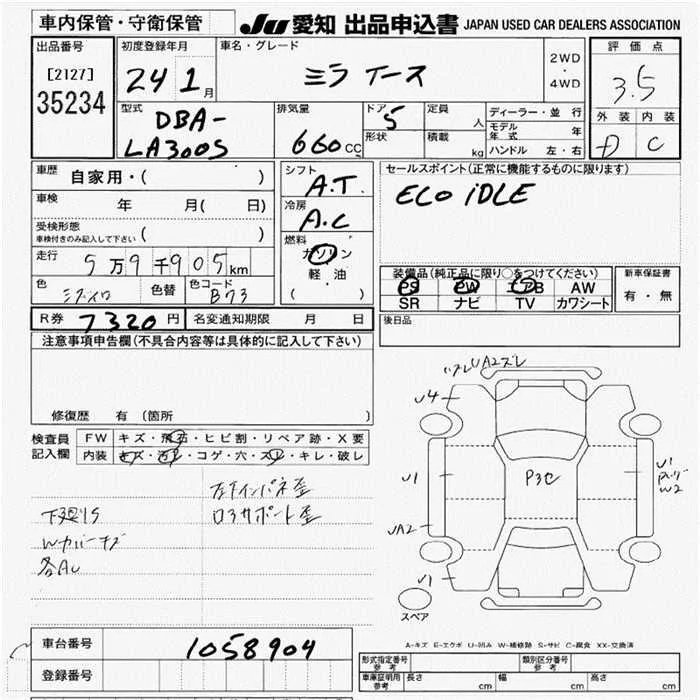 車内保管・守衛保管
JU 愛知 出品申込書 JAPAN USED CAR DEALERS ASSOCIATION
出品番号
[2127]
35234
初度登録年月
24 1月
車名・グレード
ミラ イース
2WD
・
4WD
評価点
3.5
外装 内装
D C
型式
DBA-
LA300S
排気量
660cc
ドア 5
形状
定員 人
積載 kg
ディーラー・並行
モデル年式 年
ハンドル 左・右
車歴
自家用・( )
車検 年 月( 日)
受検形態
車検付きのみ記入して下さい ( )
走行 5万9千905km
色 色替 色コード B73
シフト
A.T
冷房
A.C
燃料
ガソリン
軽・油
( )
セールスポイント(正常に機能するものに限ります)
ECO iDLE
装備品(純正品に限り○をつけてください)
PS PW エアB AW
SR ナビ TV カワシート
新車保証書
有・無
R券 7320円 名変通知期限 月 日
後日品
注意事項申告欄(不具合内容等は具体的に記入して下さい)
修復歴 有(箇所 )
検査員
記入欄
FW キズ・飛石・ヒビ割・リペア跡・X要
内装 キズ・汚れ・コゲ・穴・スレ・キレ・破レ
下廻りS
Wカバーキズ
各AU
左Fインパネ歪
ロアサポート歪
UA2ズレ
U4
U1
UA2
U1
P3C
U1
W2
スペア
A-キズ E-エクボ U-凹み W-補修跡 S-サビ C-腐食 XX-交換済
車台番号 1058904
登録番号
形式指定番号
参考
類別区分番号
参考
車庫証明用
参考
長さ cm 幅 cm 高さ cm